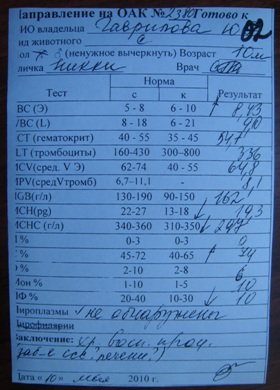 аправление на ОАК № 2380 Готово к
ИО владельца Гаврилова Ю 02
ид животного с
ол ♂ ♀ (ненужное вычеркнуть) Возраст 10м
личка Никки Врач
Тест Норма Результат
с к
ВС (Э) 5 - 8 6 - 10 8,43
/ВС (L) 8 - 18 6 - 21 9,0
СТ (гематокрит) 40 - 55 35 - 45 54,7
LT (тромбоциты) 160-430 300–800 336
MCV(сред. V Э) 62-74 40 - 55 64,8
MPV(средVтромб) 6,7-11,1 - 8,1
HGB(г/л) 130-190 90-150 162
MCH(pg) 22-27 13-18 ↓ 19,3
MCHC (г/л) 340-360 310-350 ↓ 297
% 0-3 0-3 0
% 45-72 40-65 34
% 2-10 2-8 6
Мон % 1-10 1-5 10
ЭФ % 20-40 10-30 10
Пироплазмы не обнаружены
Дирофилярии
Заключение: хр. восп. проц.
(заб-е печени?)
Дата «10» мая 2010 г.